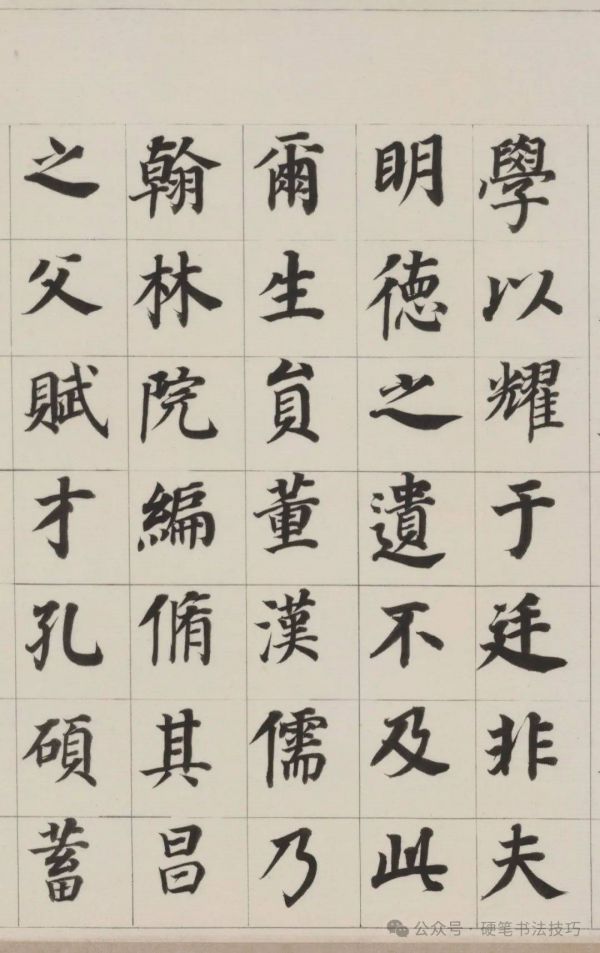 學以耀于廷非夫
明徳之遺不及此
爾生員董漢儒乃
翰林院編脩其昌
之父賦才孔碩蓄
公众号·硬笔书法技巧